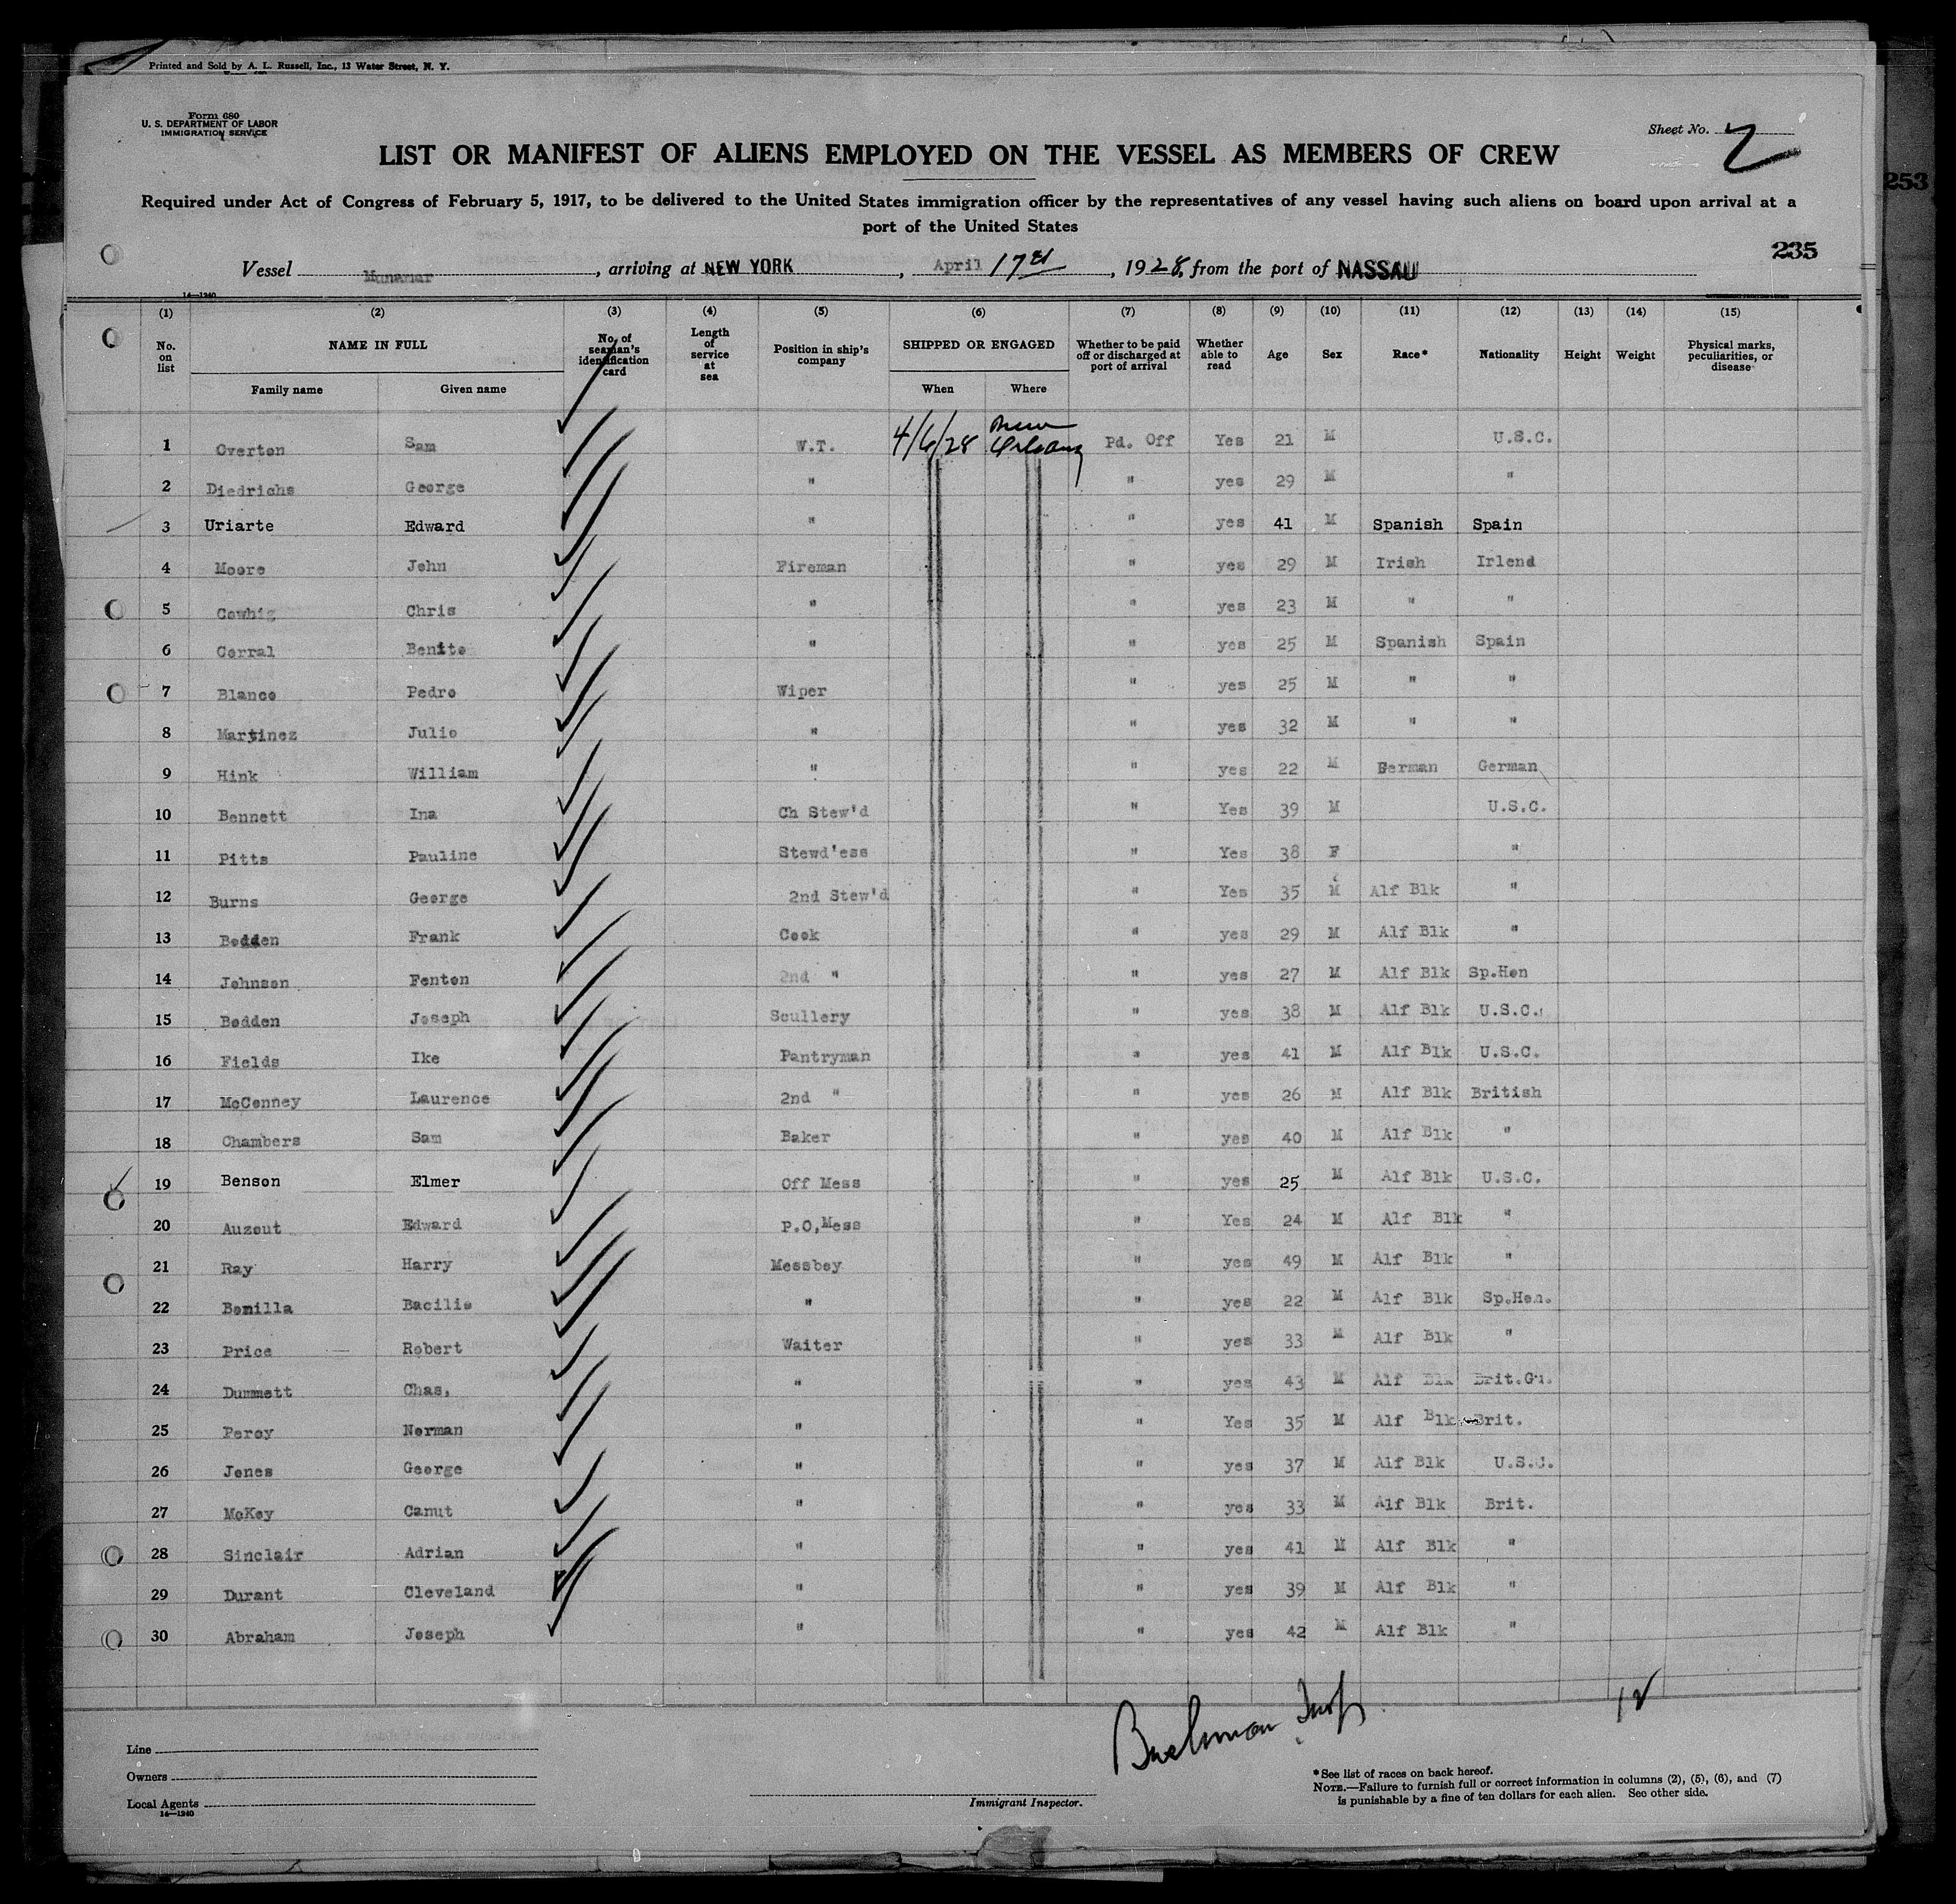 Printed and Sold by A. L. Russell, Inc., 13 Water Street, N. Y.
Form 680
U. S. DEPARTMENT OF LABOR
IMMIGRATION SERVICE
Sheet No. 2
LIST OR MANIFEST OF ALIENS EMPLOYED ON THE VESSEL AS MEMBERS OF CREW
253
Required under Act of Congress of February 5, 1917, to be delivered to the United States immigration officer by the representatives of any vessel having such aliens on board upon arrival at a
port of the United States
235
Vessel Munamar, arriving at NEW YORK, April 17th, 1928, from the port of NASSAU
14—1240
(1) (2) (3) (4) (5) (6) (7) (8) (9) (10) (11) (12) (13) (14) (15)
No. on list NAME IN FULL No. of seaman's identification card Length of service at sea Position in ship's company SHIPPED OR ENGAGED Whether to be paid off or discharged at port of arrival Whether able to read Age Sex Race* Nationality Height Weight Physical marks, peculiarities, or disease
Family name Given name When Where
1 Overton Sam W.T. 4/6/28 New Orleans Pd. Off Yes 21 M U.S.C.
2 Diedrichs George " " yes 29 M "
3 Uriarte Edward " " yes 41 M Spanish Spain
4 Moore John Fireman " yes 29 M Irish Irlend
5 Cowhig Chris " " yes 23 M " "
6 Corral Benito " " yes 25 M Spanish Spain
7 Blanco Pedro Wiper " yes 25 M " "
8 Martinez Julio " " yes 32 M " "
9 Hink William " " yes 22 M German German
10 Bennett Ina Ch Stew'd " Yes 39 M U.S.C.
11 Pitts Pauline Stewd'ess " Yes 38 F "
12 Burns George 2nd Stew'd " Yes 35 M Alf Blk "
13 Bodden Frank Cook " yes 29 M Alf Blk "
14 Johnson Fenton 2nd " " yes 27 M Alf Blk Sp.Hon
15 Bodden Joseph Scullery " yes 38 M Alf Blk U.S.C.
16 Fields Ike Pantryman " yes 41 M Alf Blk U.S.C.
17 McConney Laurence 2nd " " yes 26 M Alf Blk British
18 Chambers Sam Baker " yes 40 M Alf Blk "
19 Benson Elmer Off Mess " yes 25 M Alf Blk U.S.C.
20 Auzout Edward P.O,Mess " Yes 24 M Alf Blk "
21 Ray Harry Messboy " yes 49 M Alf Blk "
22 Bonilla Bacilio " " yes 22 M Alf Blk Sp.Hon.
23 Price Robert Waiter " yes 33 M Alf Blk "
24 Dummett Chas, " " yes 43 M Alf Blk Brit.Gu.
25 Percy Norman " " Yes 35 M Alf Blk Brit.
26 Jones George " " yes 37 M Alf Blk U.S.C.
27 McKoy Canut " " yes 33 M Alf Blk Brit.
28 Sinclair Adrian " " yes 41 M Alf Blk "
29 Durant Cleveland " " yes 39 M Alf Blk "
30 Abraham Joseph " " yes 42 M Alf Blk "
Line
Owners
Local Agents
14—1240
Immigrant Inspector.
*See list of races on back hereof.
NOTE.—Failure to furnish full or correct information in columns (2), (5), (6), and (7)
is punishable by a fine of ten dollars for each alien. See other side.